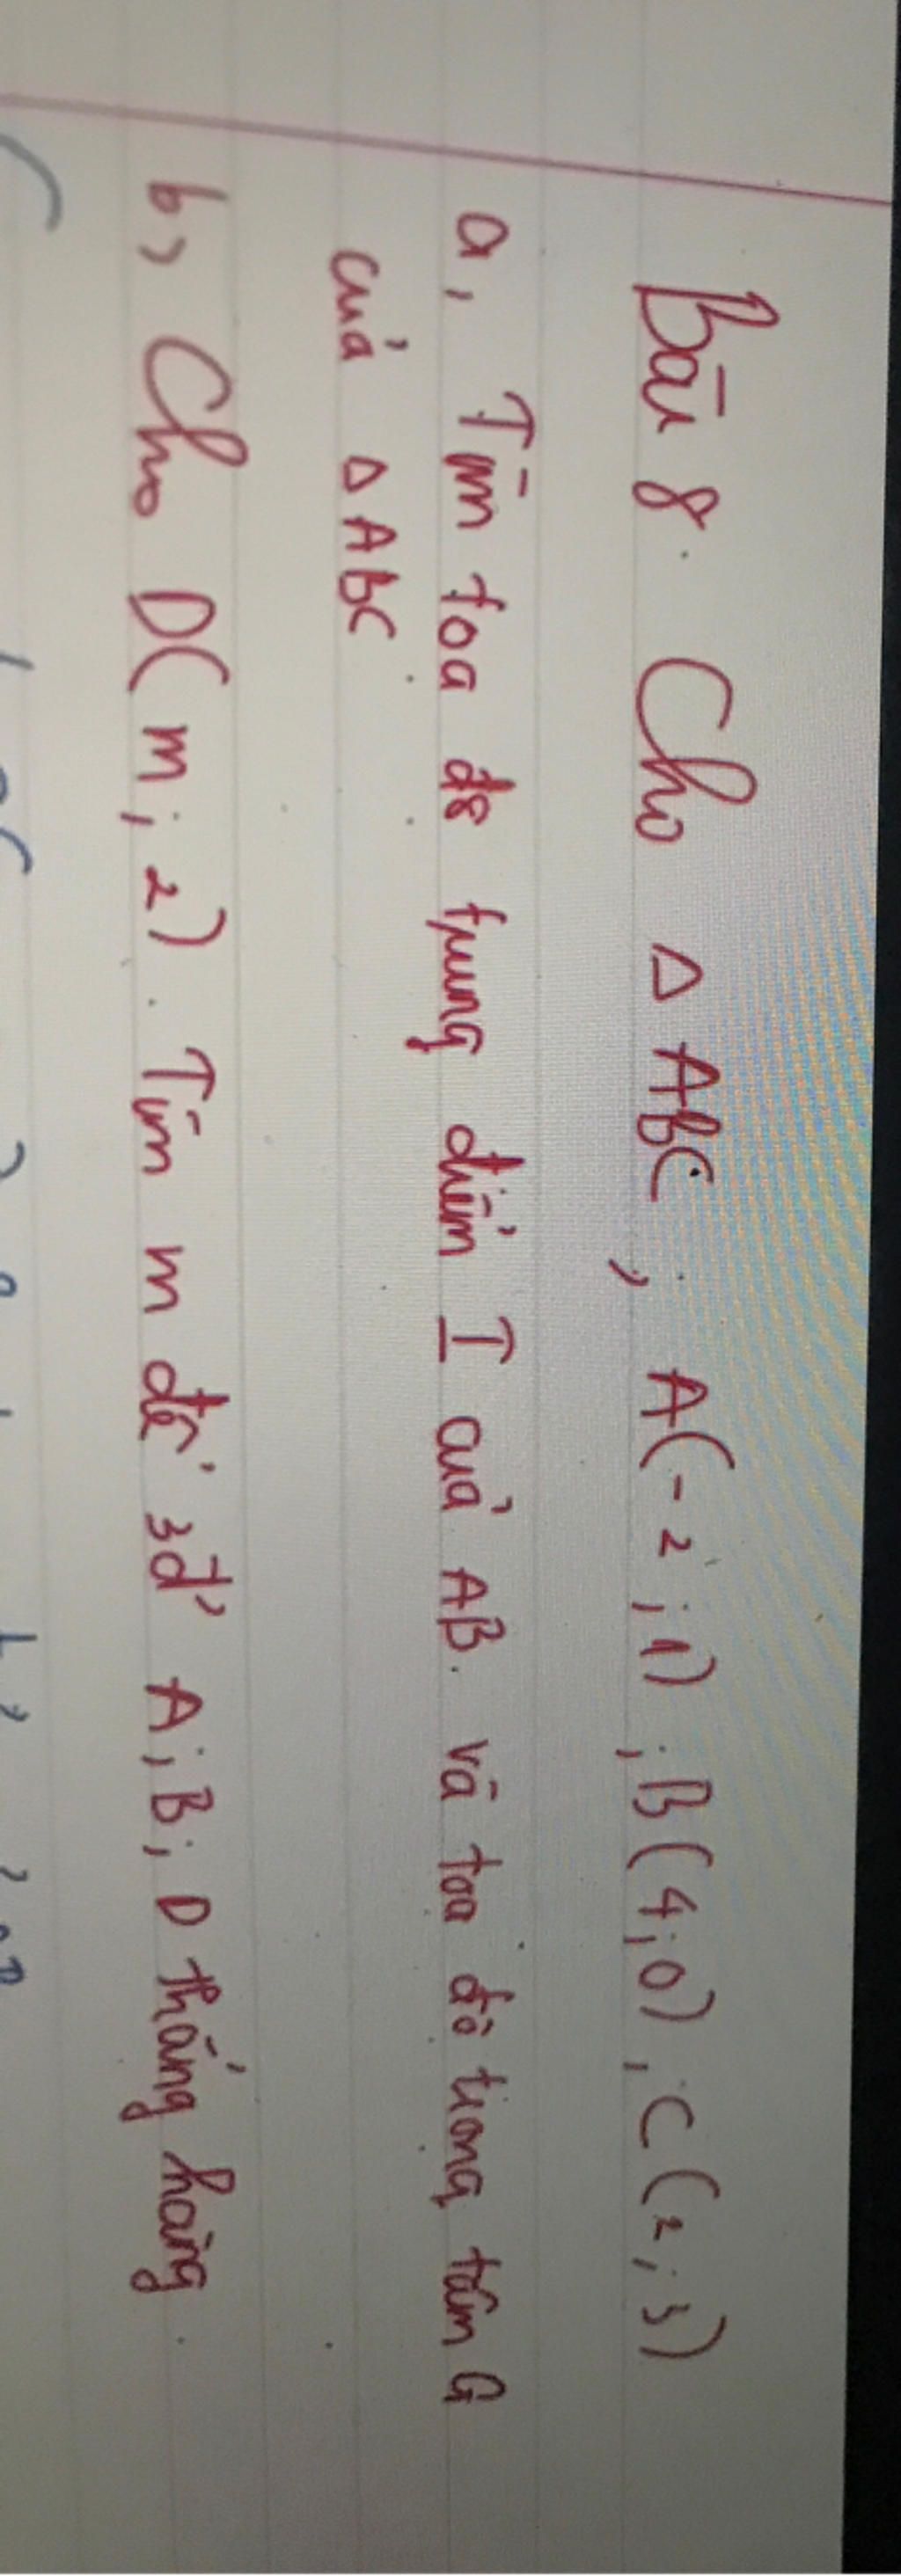 Bài 8. Cho △ ABC, A(-2;1), B(4;0), C(2;3)
a, Tìm toạ độ trung điểm I của AB. và toạ độ trọng tâm G
của △ ABC
b, Cho D(m;2). Tìm m để 3đ' A;B;D thẳng hàng.